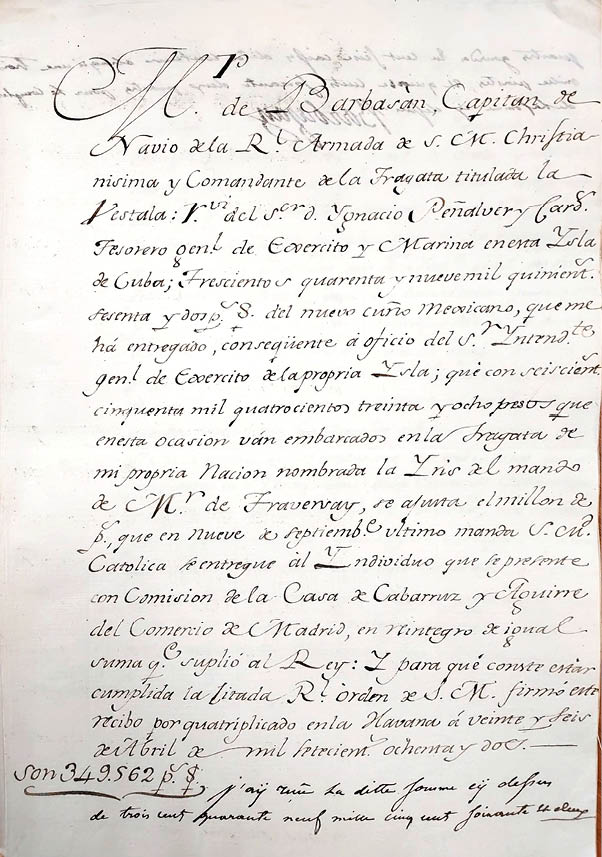 M.r de Barbasan, Capitan de
Navio de la R.l Armada de S. M. Christia-
nisima y Comandante de la Fragata titulada la
Vestala: R.vi del S.or d. Ygnacio Peñalver y Card.s
Tesorero gen.l de Exercito y Marina en esta Ysla
de Cuba; Trescientos quarenta y nueve mil quinient.s
sesenta y dos p.s $. del nuevo cuño Mexicano, que me
há entregado, conseqüente á oficio del S.r Yntend.te
gen.l de Exercito de la propria Ysla; que con seiscient.s
cinquenta mil quatrocientos treinta y ocho pesos que
en esta ocasion ván embarcados en la Fragata de
mi propria Nacion nombrada la Yris del mando
de M.r de Traversay, se ajusta el millon de
p.s, que en nueve de Septiemb.e ultimo manda S. M.
Catolica se entregue al Yndividuo que se presente
con Comision de la Casa de Cabarruz y Aguirre
del Comercio de Madrid, en reintegro de igual
suma q.e suplió al Rey: Y para que conste estar
cumplida la citada R.l orden de S. M. firmo este
recibo por quatriplicado en la Havana á veinte y seis
de Abril de mil setecient.s ochenta y dos.
Son 349.562 p.s $
j'aij reçu la ditte somme cij dessus
de trois cent quarante neuf mille cinq cent soixante et deux